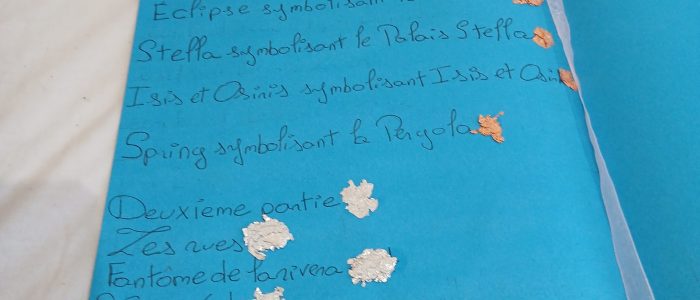 Eclipse symbolisant
Stella symbolisant le Palais Stella
Isis et Osiris symbolisant Isis et
Spring symbolisant la Pergola
Deuxieme partie
Les rues
Fantôme de